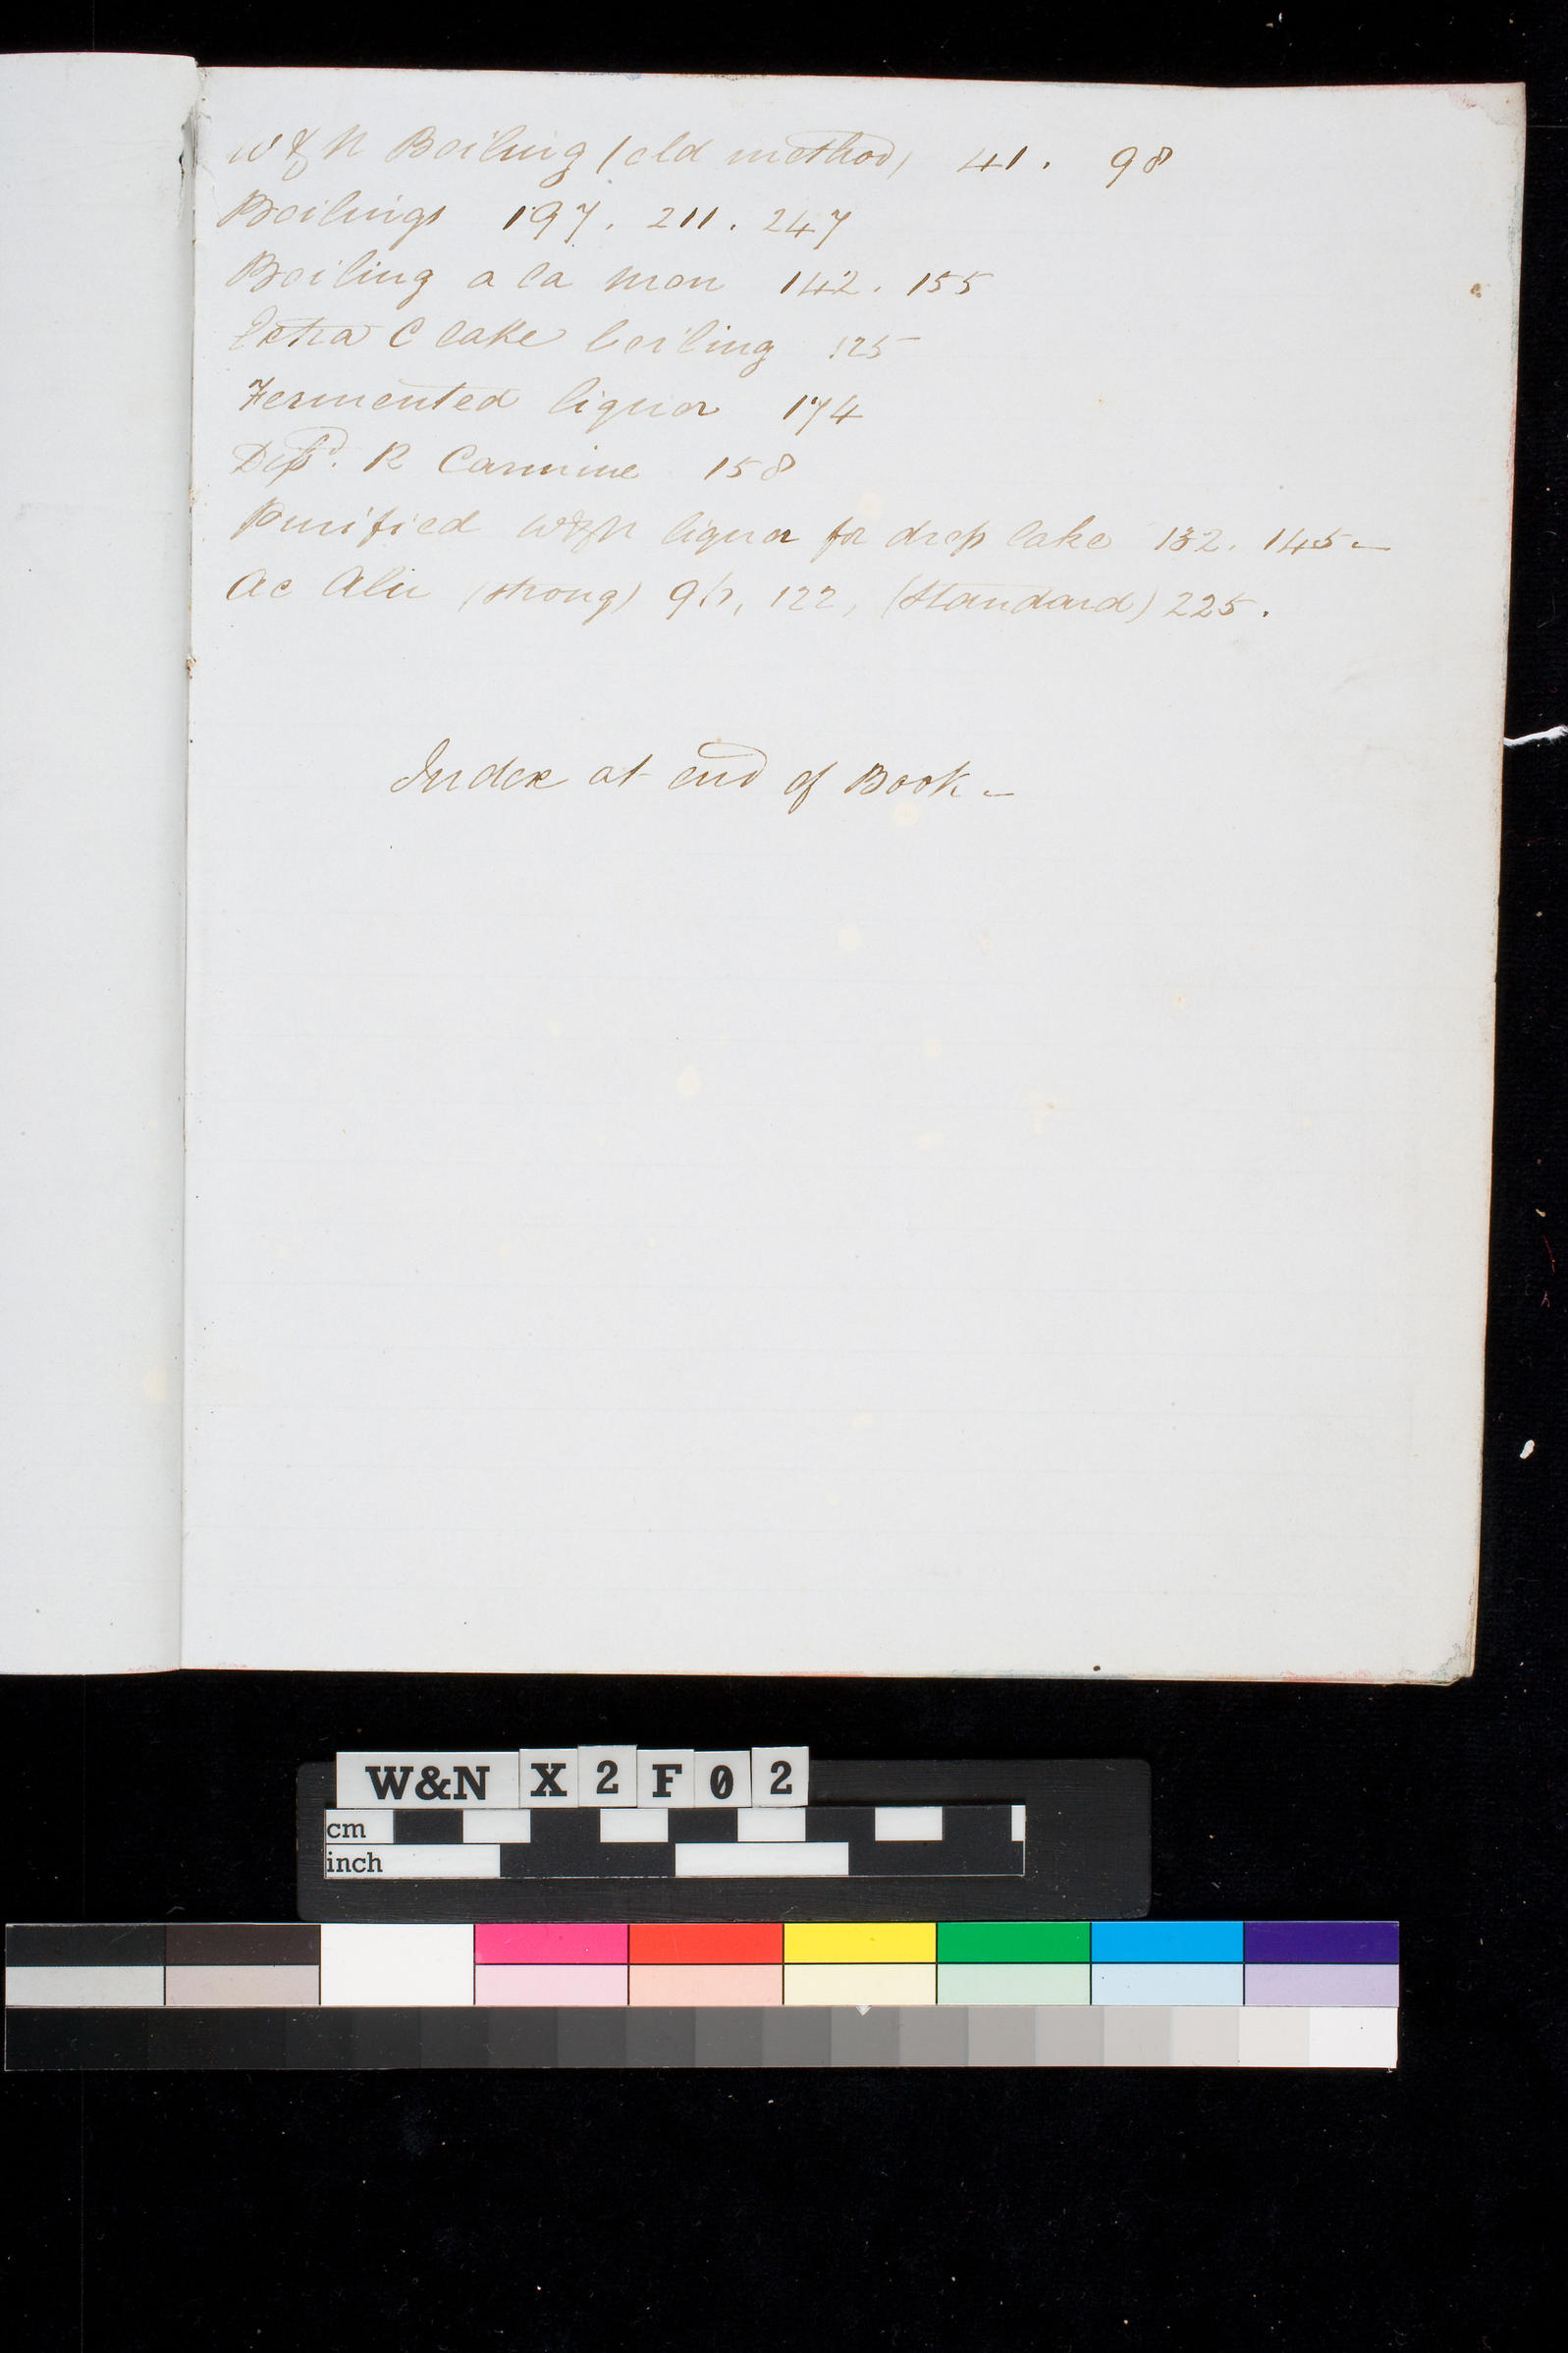 W & N Boiling (old method) 41. 98
Boilings 197. 211. 247
Boiling a la mon 142. 155
Extra C lake boiling 125
Fermented liquor 174
R Carmine 158
Purified W&N liquor for drop lake 132. 145-
Ac Alu (strong) 122, (Standard) 225.
Index at end of Book -
W&N X 2 F 0 2
cm
inch